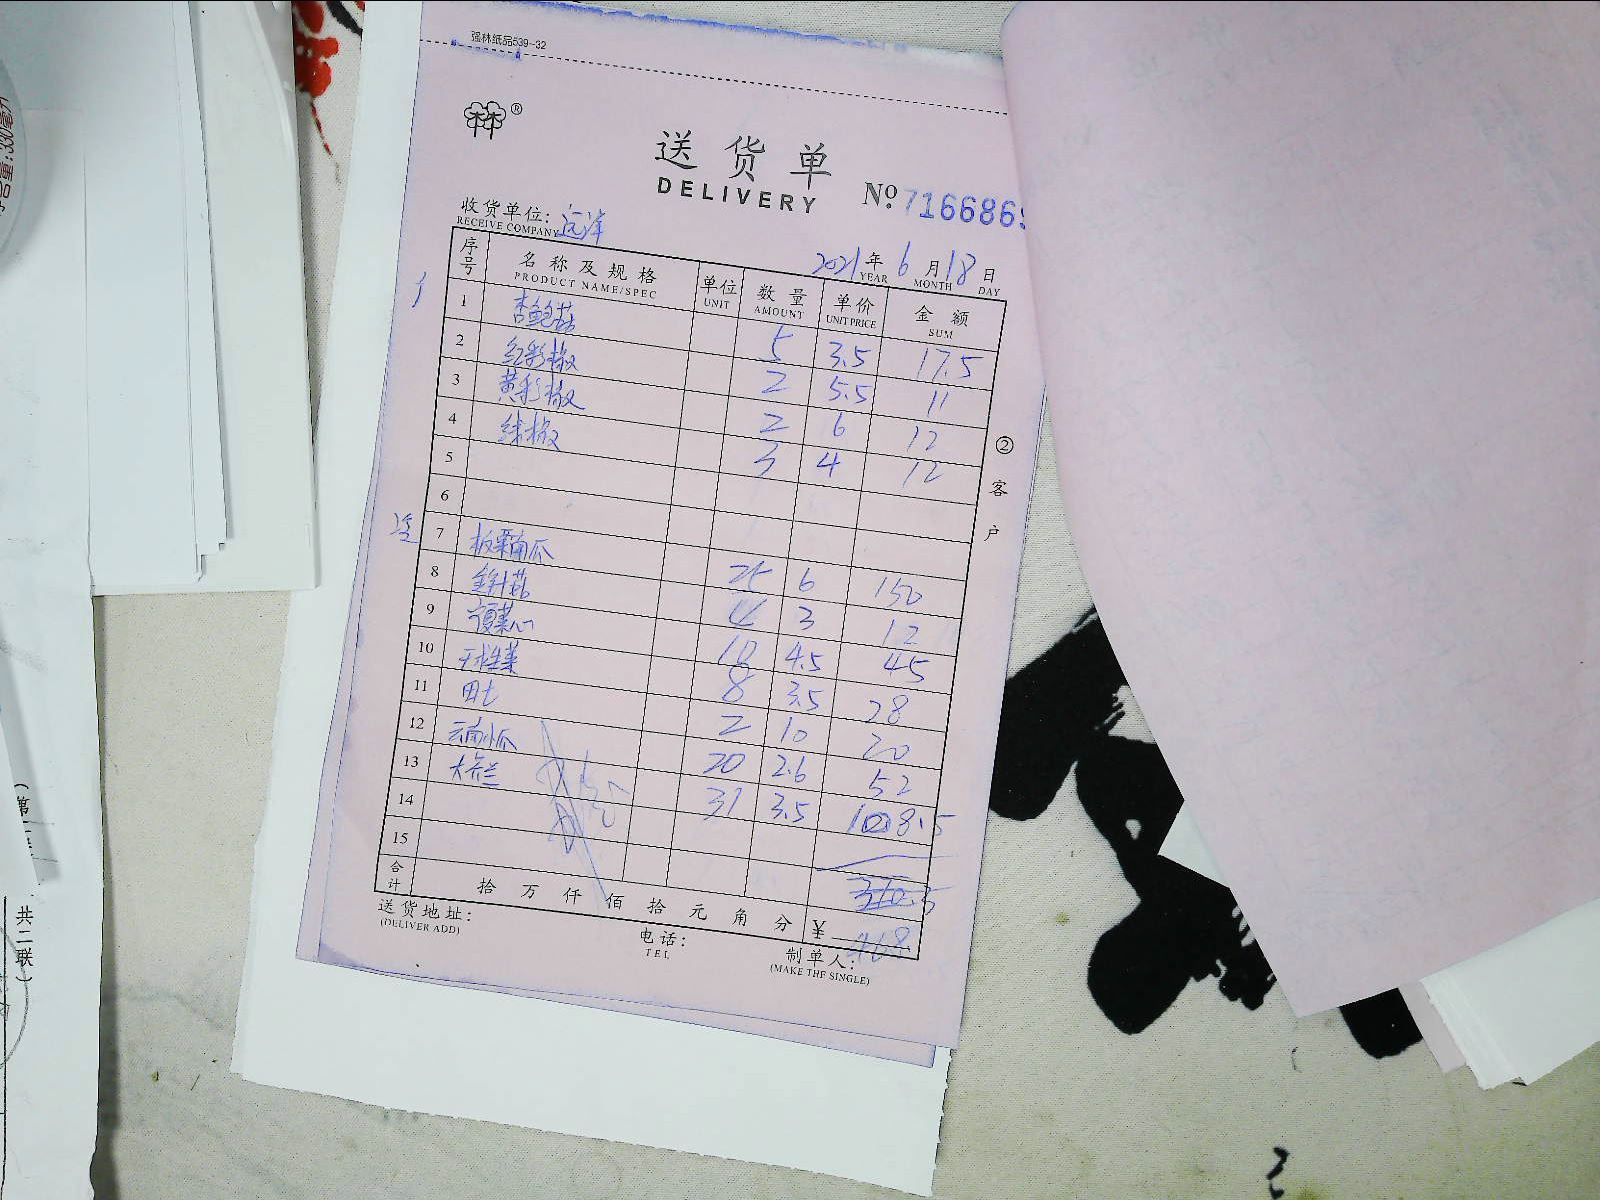 强林纸品539-32
林林®
送货单
DELIVERY
No. 7166869
收货单位: 远洋
RECEIVE COMPANY
2021年 6月 18日
YEAR MONTH DAY
序号 名称及规格 单位 数量 单价 金额
PRODUCT NAME/SPEC UNIT AMOUNT UNIT PRICE SUM
1 杏鲍菇 5 3.5 17.5
2 红彩椒 2 5.5 11
3 黄彩椒 2 6 12
4 线椒 3 4 12
5
6
7 板栗南瓜 25 6 150
8 金针菇 4 3 12
9 宁夏菜心 10 4.5 45
10 干水生菜 8 3.5 28
11 田七 2 10 20
12 云南小瓜 20 2.6 52
13 大芥兰 31 3.5 108.5
14
15
合计 拾 万 仟 佰 拾 元 角 分 ¥ 468
送货地址:
(DELIVER ADD)
电话:
TEL
制单人:
(MAKE THE SINGLE)
② 客户
共二联)